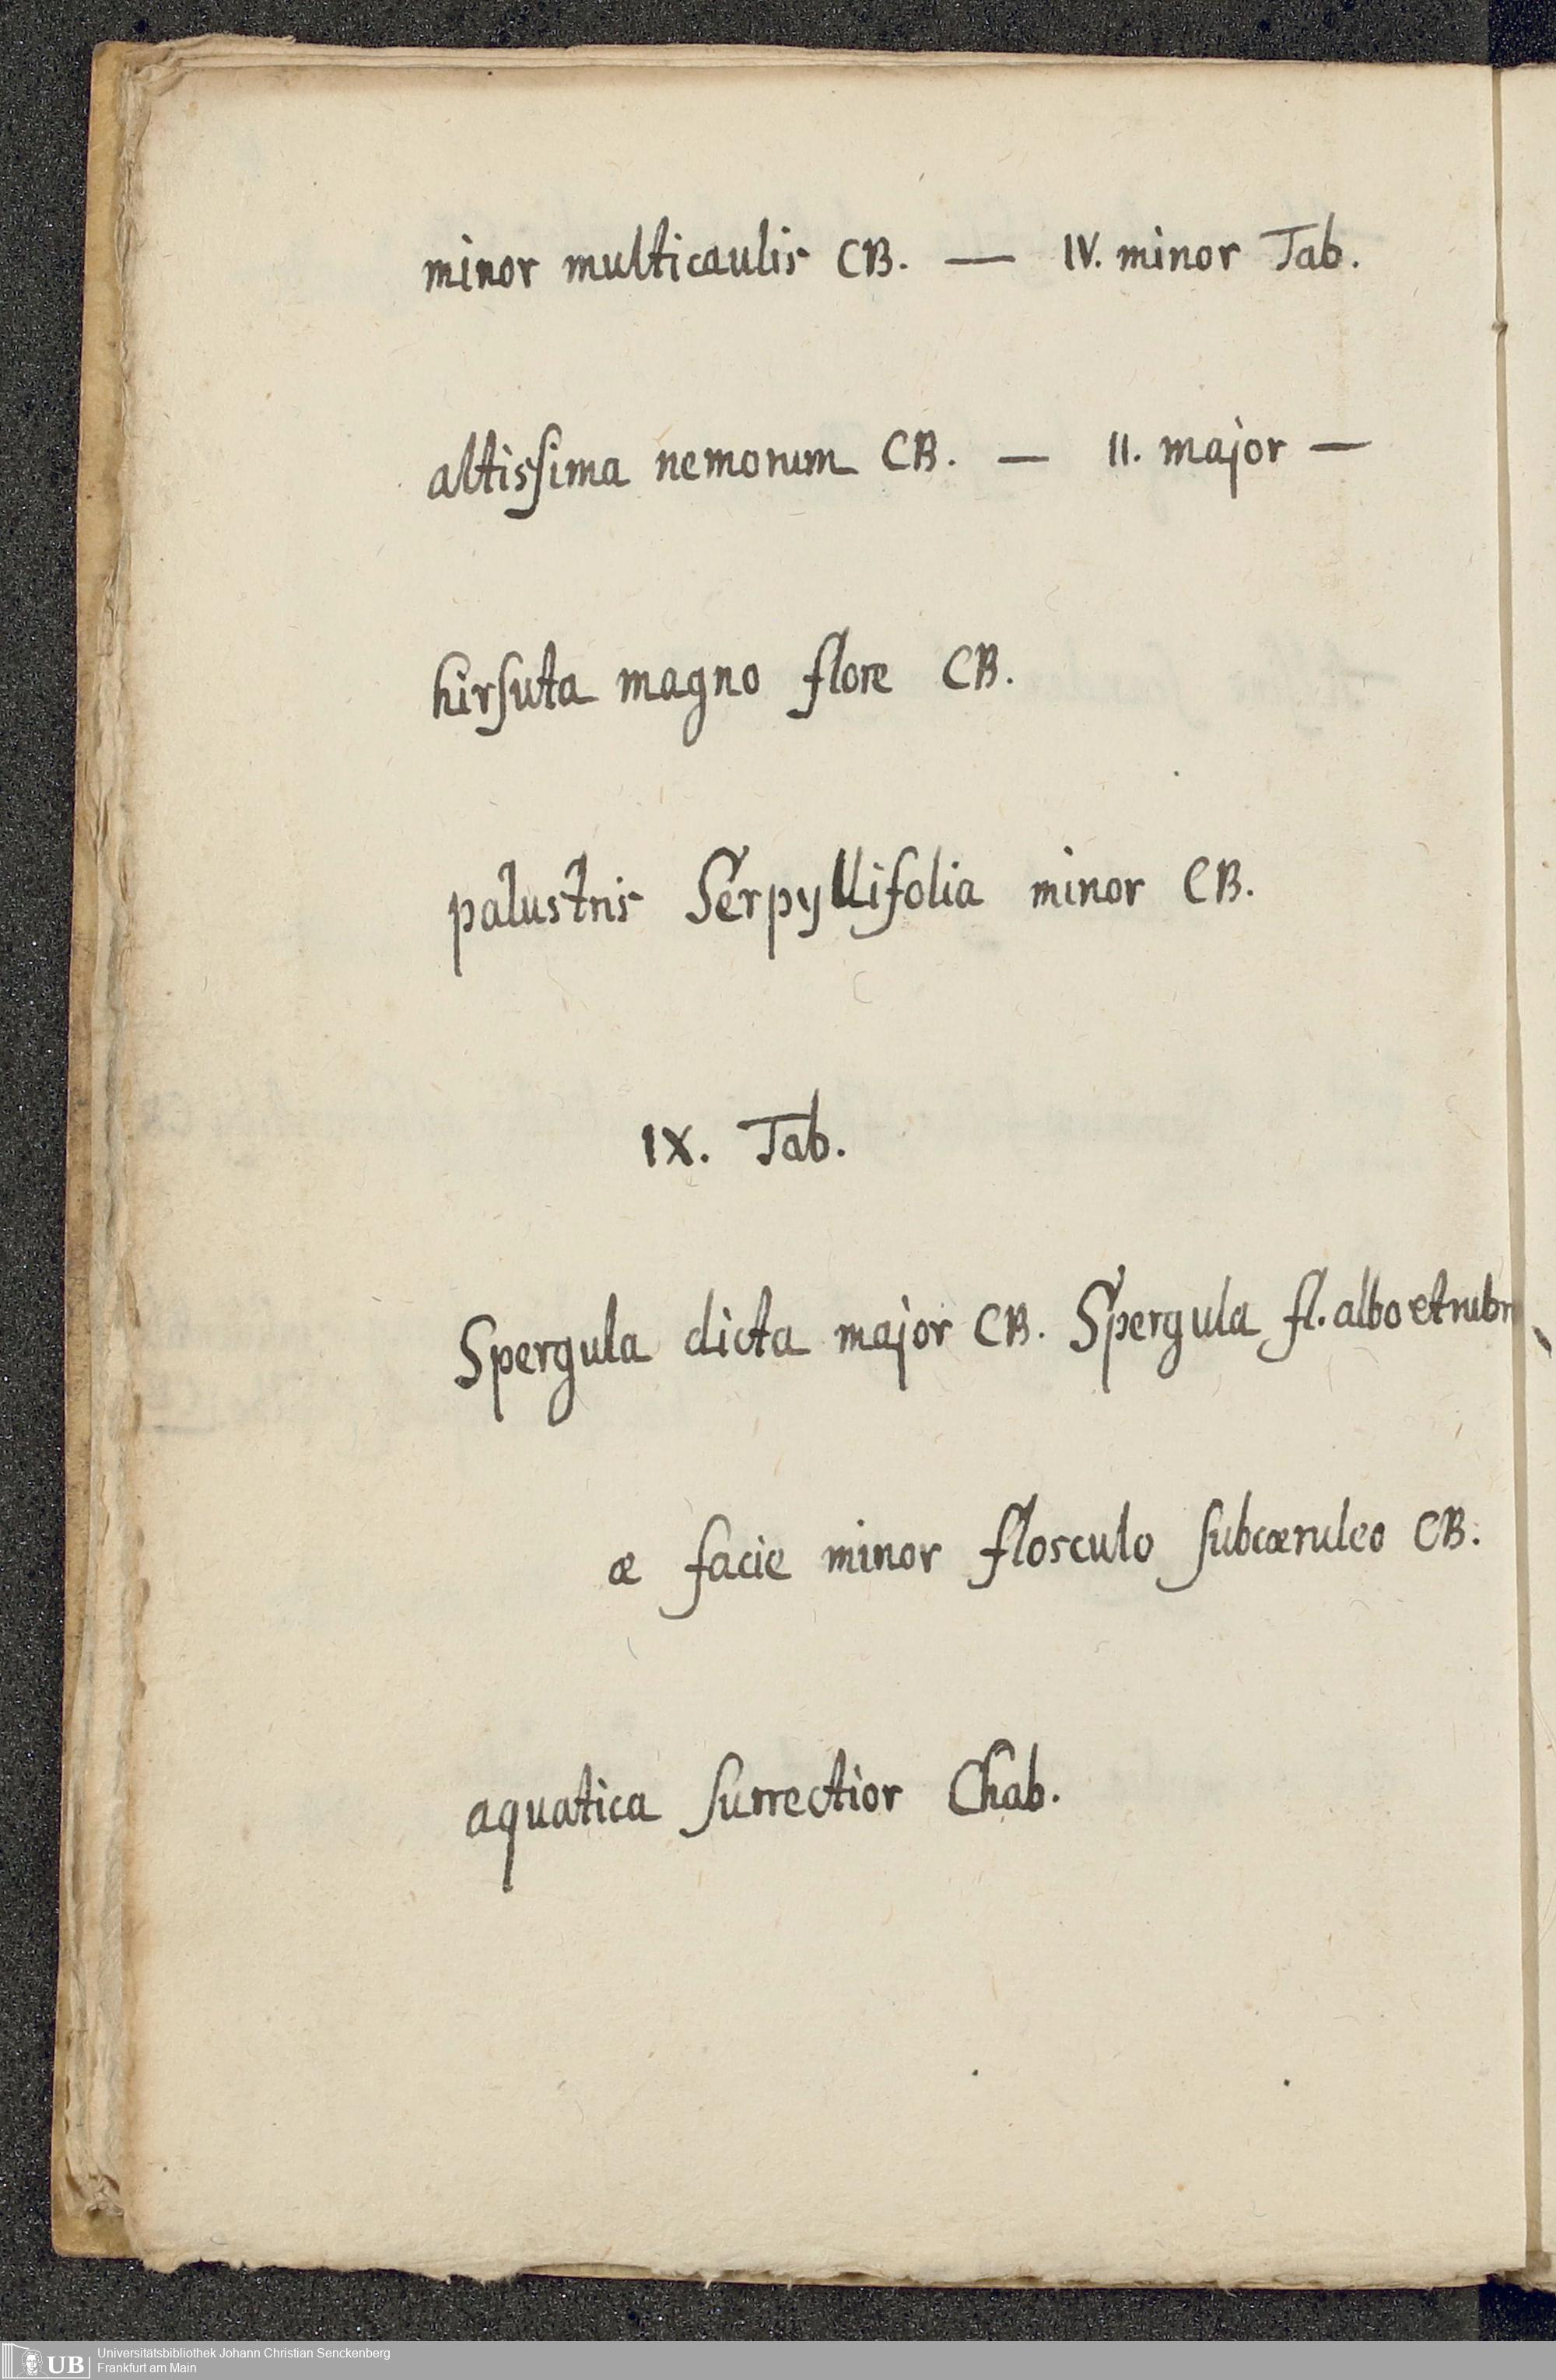 minor multicaulis CB. — IV. minor Tab.
altisſima nemorum CB. — II. major —
hirſuta magno flore CB.
palustris Serpyllifolia minor CB.
IX. Tab.
Spergula dicta major CB. Spergula fl. albo et rubr
æ facie minor flosculo ſubcæruleo CB.
aquatica ſurrectior Chab.
UB Universitätsbibliothek Johann Christian Senckenberg
Frankfurt am Main